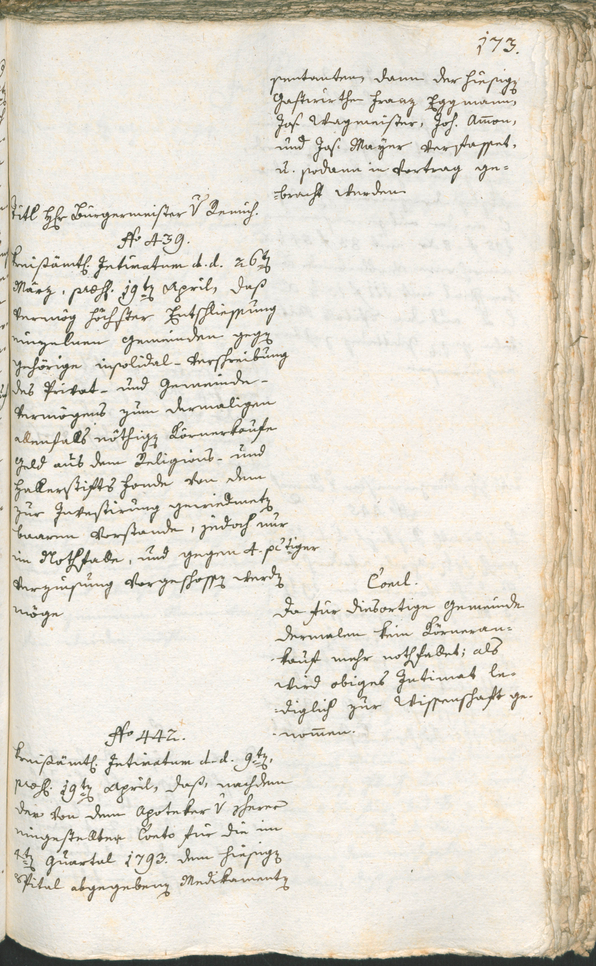 173.
sentanten dann der hiesig
Gastwirthe Franz Eggmann,
Jos. Wagmeister, Joh. Amon,
und Jos. Mayer verfasset,
u. sodann in Vortrag ge-
-bracht werden.
Titl Hr Bürgermeister v
No 439.
Kreisämtl. Intimatum d. d. 26t
März, praes. 19t April, daß
vermög höchster Entschliessung
einzelnen Gemeinden gegen
gehörige insolidal-Verschreibung
des Privat- und Gemeinde-
Vermögens zum dermaligen
allenfalls nöthigen Körnerkaufe
Geld aus dem Religions- und
Hallerstifts Fonde von dem
zur Investirung gewiedmeten
baaren Vorstande, jedoch nur
im Nothfalle, und gegen 4. pctiger
Verzinsung vorgeschossen werden
möge
Concl.
Da für diesortige Gemeinde
dermalen kein Körneran-
kauf mehr nothfallet; als
wird obiges Intimat le-
-diglich zur Wissenschaft ge-
-nommen.
No 442.
Kreisämtl. Intimatum d. d. 9t,
praes. 19t April, daß, nachdem
der von dem Apoteker v
eingestellte Conto für die im
Quartal 1793. dem hiesigen
Spital abgegebene Medikamente